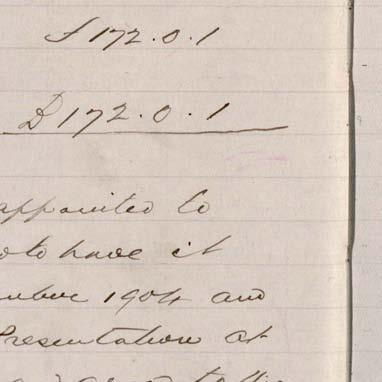 £172.0.1
£172.0.1
appointed to
to have it
1904 and
Presentation at